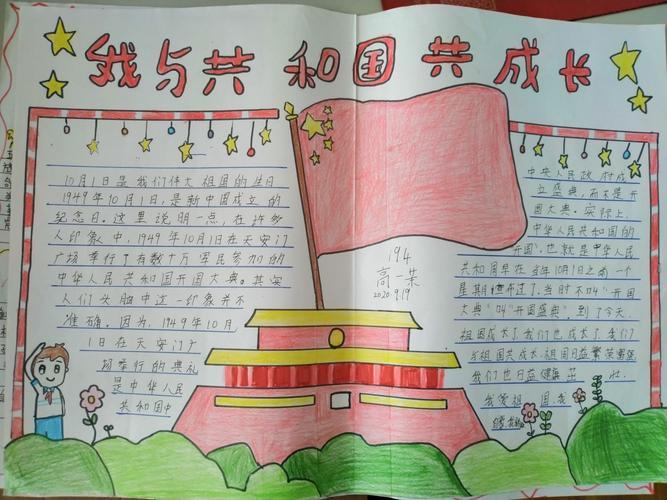 我与共和国共成长
10月1日是我们伟大祖国的生日
1949年10月1日,是新中国成立的
纪念日。这里说明一点,在许多
人印象中,1949年10月1日在天安门
广场举行了有数十万军民参加的
中华人民共和国开国大典。其实
人们头脑中这一印象并不
准确。因为,1949年10月
1日在天安门广
场举行的典礼
是中华人民
共和国中
194
高一荣
2020.9.19
中央人民政府成
立盛典,而不是开
国大典。实际上,
中华人民共和国的
"开国",也就是中华人民
共和国早在当年10月1日之前一个
星期
开过了,当时不叫"开国
大典"叫"开国盛典",到了今天,
祖国成长了我们也成长了我们
与祖国共成长.祖国日益繁荣富强
我们也日益健康茁壮.
我爱祖国,我